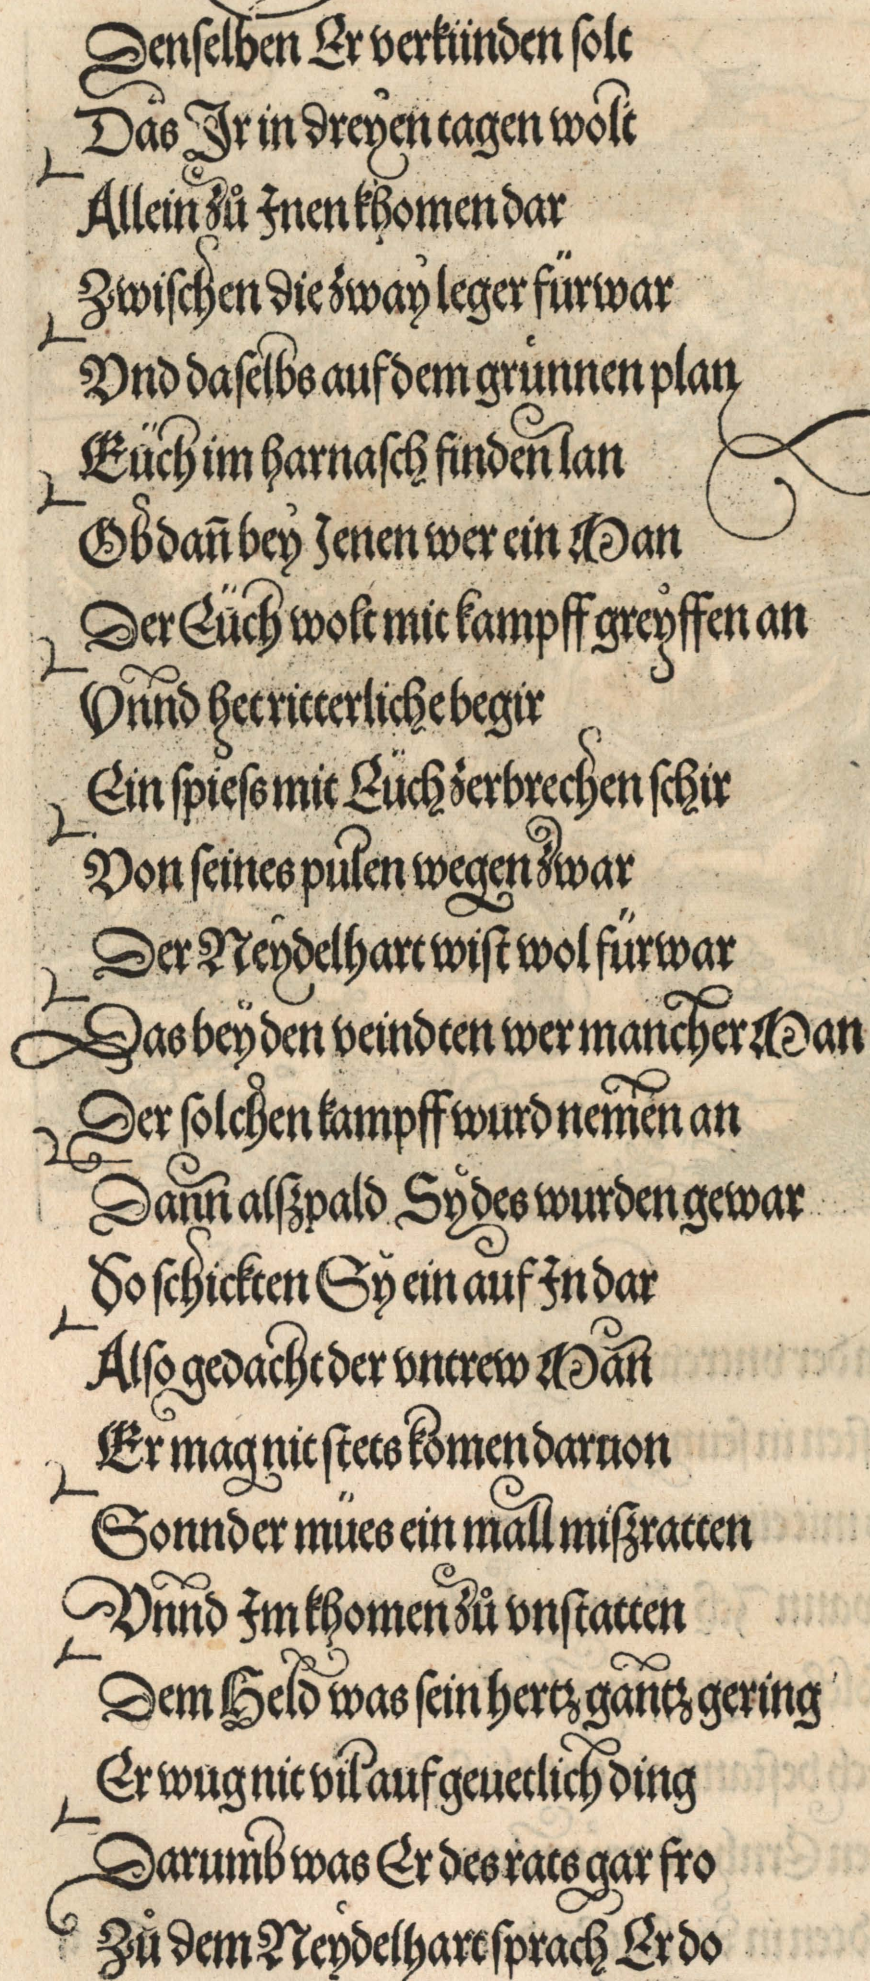 Denselben Er verkünden solt
Das Ir in dreyen tagen wolt
Allein zů Inen khomen dar
Zwischen die zway leger fürwar
Vnd daselbs auf dem grůnnen plan
Eüch im harnasch finden lan
Ob dan̄ bey Jenen wer ein Man
Der Eüch wolt mit kampff greyffen an
Vnnd het ritterliche begir
Ein spiess mit Eüch zerbrechen schir
Von seines pulen wegen zwar
Der Neydelhart wist wol fürwar
Das bey den veindten wer mancher Man
Der solchen kampff wurd nemen an
Dann alßpald Sy des wurden gewar
So schickten Sy ein auf In dar
Also gedacht der vntrew Man
Er mag nit stets komen daruon
Sonnder mües ein mall mißratten
Vnnd Im khomen zů vnstatten
Dem Held was sein hertz gantz gering
Er wug nit vil auf geuetlich ding
Darumb was Er des rats gar fro
Zů dem Neydelhart sprach Er do